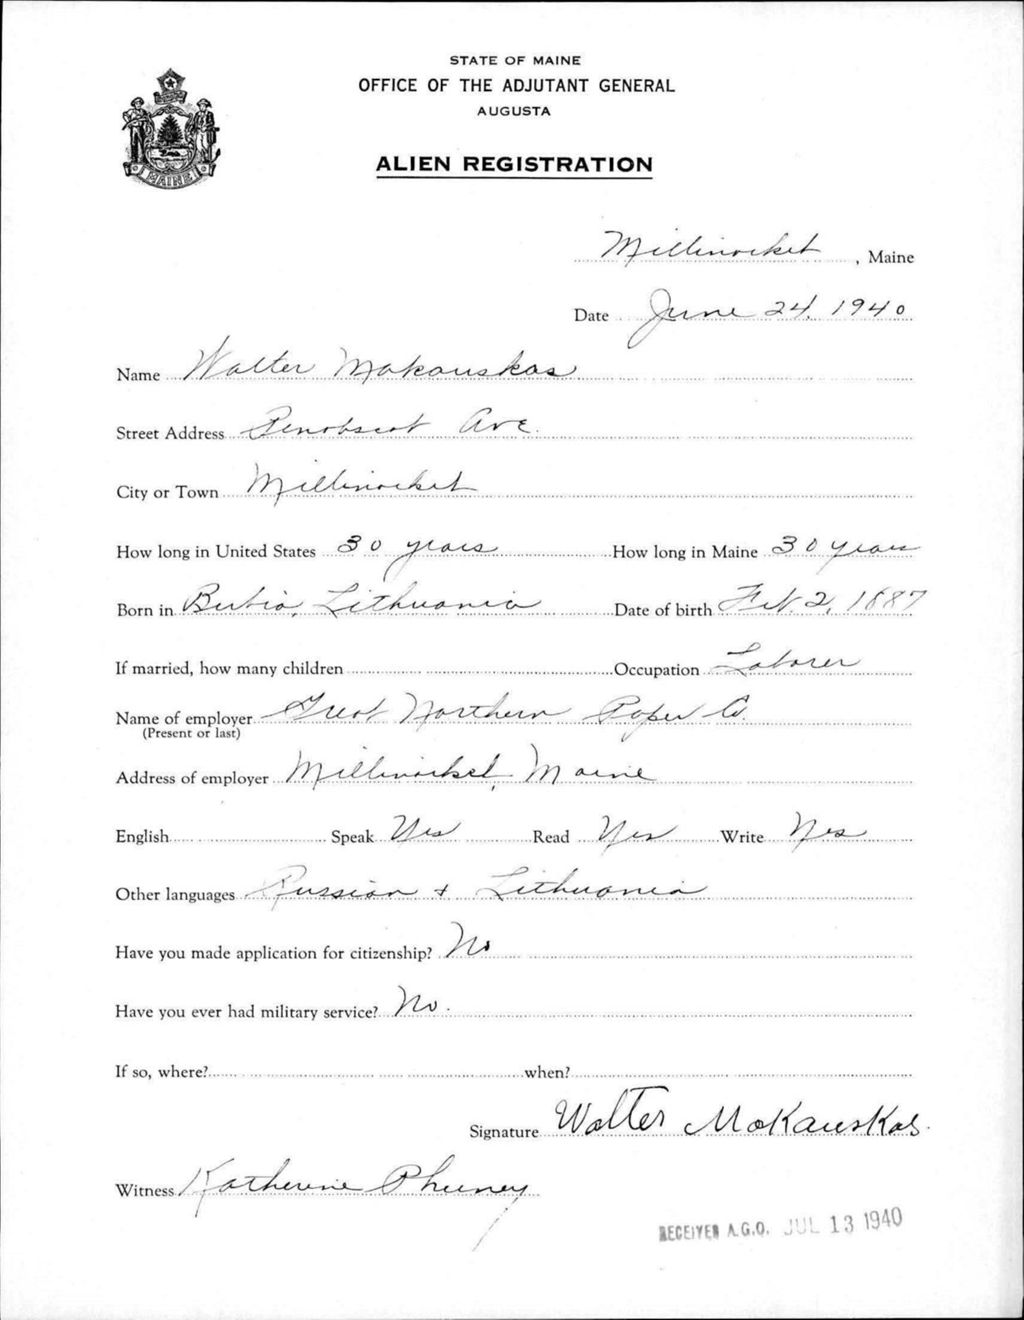 STATE OF MAINE
OFFICE OF THE ADJUTANT GENERAL
AUGUSTA
ALIEN REGISTRATION
MAINE
Millinocket, Maine
Date June 24, 1940
Name Walter Makauskas
Street Address Penobscot Ave.
City or Town Millinocket
How long in United States 30 years How long in Maine 30 years
Born in Lithuania Date of birth Feb. 2, 1887
If married, how many children Occupation Laborer
Name of employer Great Northern Paper Co.
(Present or last)
Address of employer Millinocket, Maine
English Speak Yes Read Yes Write Yes
Other languages Russian + Lithuania
Have you made application for citizenship? No
Have you ever had military service? No.
If so, where? when?
Signature Walter Makauskas.
Witness Katherine
RECEIVED A.G.O. JUL 13 1940